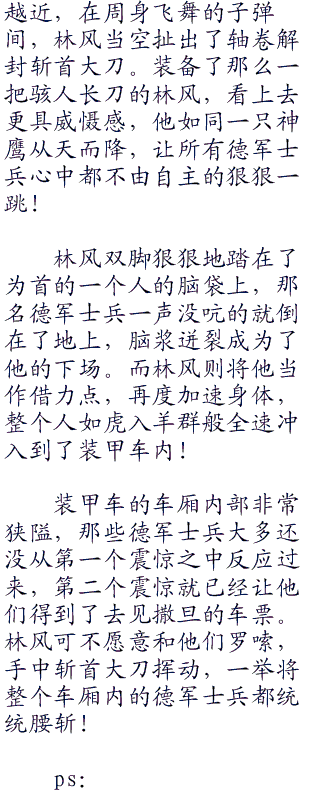 越近，在周身飞舞的子弹
间，林风当空扯出了轴卷解
封斩首大刀。装备了那么一
把骇人长刀的林风，看上去
更具威慑感，他如同一只神
鹰从天而降，让所有德军士
兵心中都不由自主的狠狠一
跳！
林风双脚狠狠地踏在了
为首的一个人的脑袋上，那
名德军士兵一声没吭的就倒
在了地上，脑浆迸裂成为了
他的下场。而林风则将他当
作借力点，再度加速身体，
整个人如虎入羊群般全速冲
入到了装甲车内！
装甲车的车厢内部非常
狭隘，那些德军士兵大多还
没从第一个震惊之中反应过
来，第二个震惊就已经让他
们得到了去见撒旦的车票。
林风可不愿意和他们罗嗦，
手中斩首大刀挥动，一举将
整个车厢内的德军士兵都统
统腰斩！
ps: